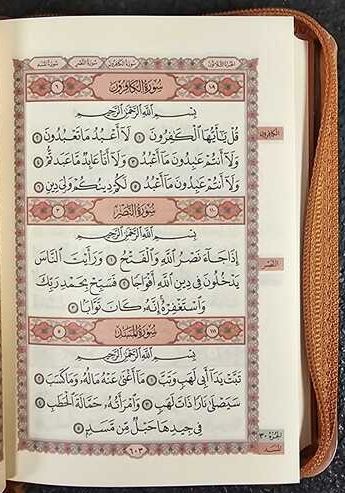 الجزء الثلاثون سورة الكافرون سورة النصر سورة المسد
١٠٩ سورة الكافرون ٦
بسم الله الرحمن الرحيم
قُلْ يَٰٓأَيُّهَا ٱلْكَٰفِرُونَ ١ لَآ أَعْبُدُ مَا تَعْبُدُونَ ٢
وَلَآ أَنتُمْ عَٰبِدُونَ مَآ أَعْبُدُ ٣ وَلَآ أَنَا۠ عَابِدٌ مَّا عَبَدتُّمْ ٤
وَلَآ أَنتُمْ عَٰبِدُونَ مَآ أَعْبُدُ ٥ لَكُمْ دِينُكُمْ وَلِيَ دِينِ ٦
١١٠ سورة النصر ٣
بسم الله الرحمن الرحيم
إِذَا جَآءَ نَصْرُ ٱللَّهِ وَٱلْفَتْحُ ١ وَرَأَيْتَ ٱلنَّاسَ
يَدْخُلُونَ فِي دِينِ ٱللَّهِ أَفْوَاجًا ٢ فَسَبِّحْ بِحَمْدِ رَبِّكَ
وَٱسْتَغْفِرْهُ إِنَّهُۥ كَانَ تَوَّابًۢا ٣
١١١ سورة المسد ٥
بسم الله الرحمن الرحيم
تَبَّتْ يَدَآ أَبِي لَهَبٍ وَتَبَّ ١ مَآ أَغْنَىٰ عَنْهُ مَالُهُۥ وَمَا كَسَبَ ٢
سَيَصْلَىٰ نَارًا ذَاتَ لَهَبٍ ٣ وَٱمْرَأَتُهُۥ حَمَّالَةَ ٱلْحَطَبِ ٤
فِي جِيدِهَا حَبْلٌ مِّن مَّسَدٍۭ ٥
٦٠٣
الكافرون
النصر
الجزء ٣٠
المسد